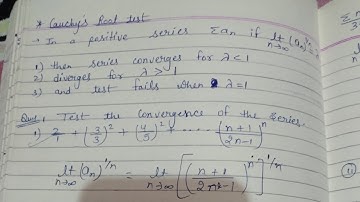 * Cauchy's Root test
- In a positive series Σan if lt n→∞ (an)^1/n =
1) then series converges for λ < 1
2) diverges for λ > 1
3) and test fails when λ = 1
Ques 1 Test the convergence of the series.
1) 2/1 + (3/3)^2 + (4/5)^3 + ..... (n+1/2n-1)^n
lt n→∞ (an)^1/n = lt n→∞ [(n+1/2n-1)^n]^1/n